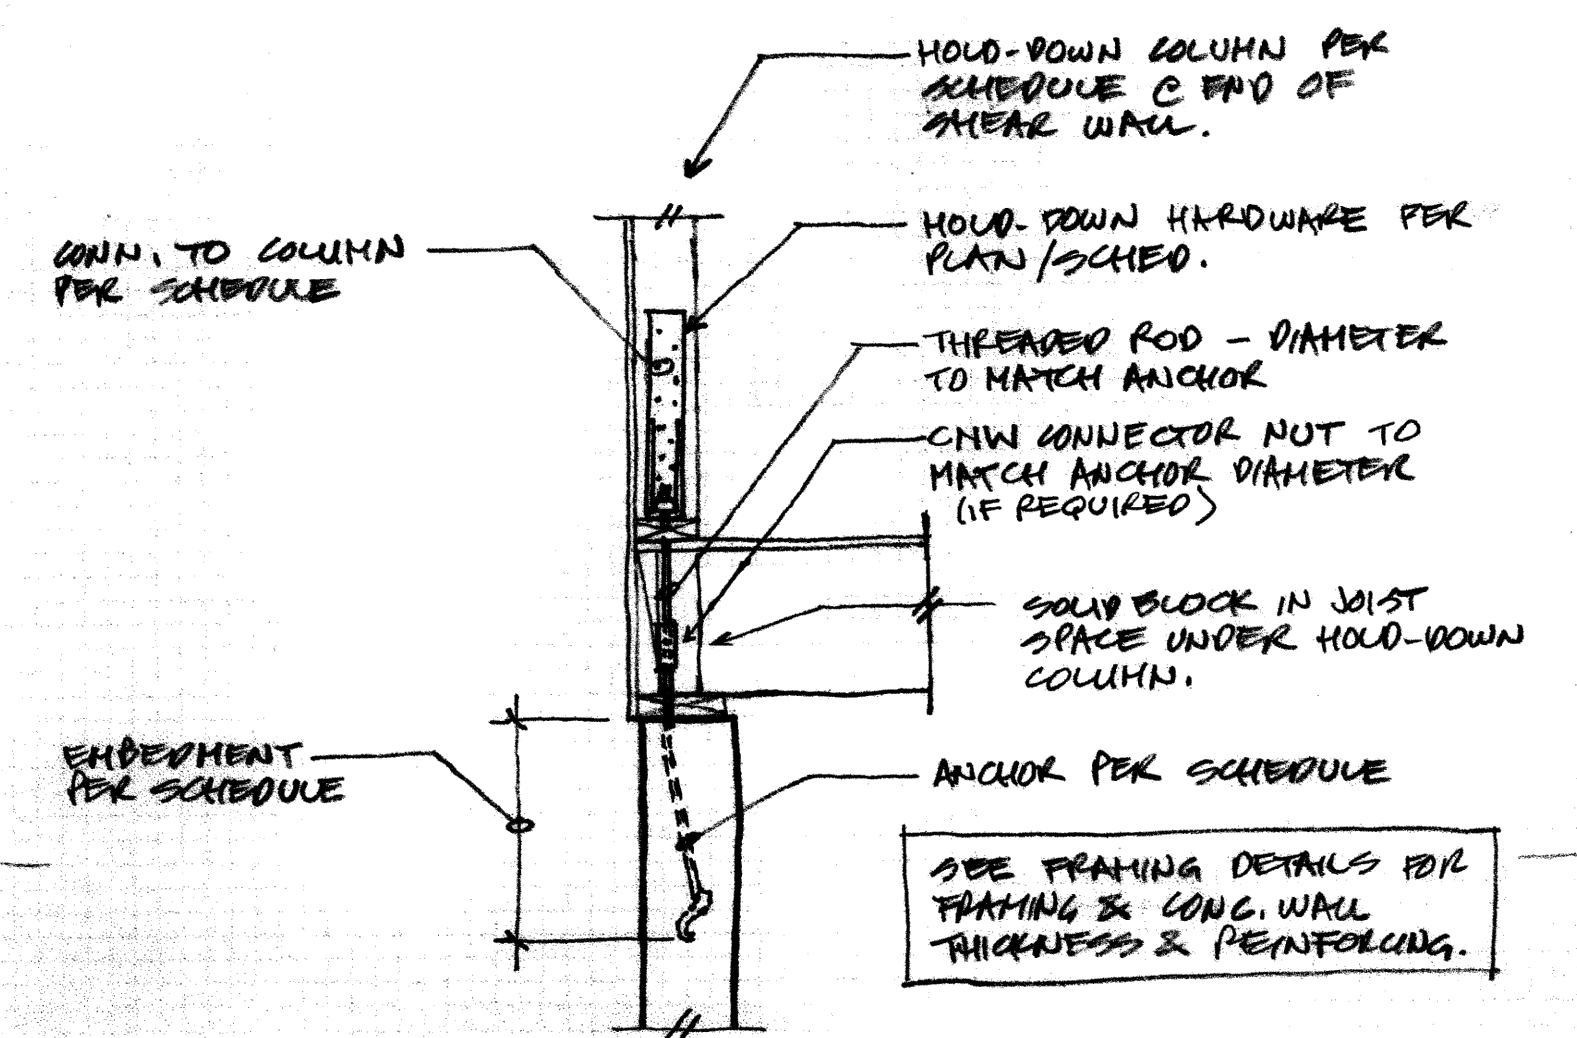 HOLD-DOWN COLUMN PER
SCHEDULE @ END OF
SHEAR WALL.
HOLD-DOWN HARDWARE PER
PLAN/SCHED.
CONN. TO COLUMN
PER SCHEDULE
THREADED ROD - DIAMETER
TO MATCH ANCHOR
CNW CONNECTOR NUT TO
MATCH ANCHOR DIAMETER
(IF REQUIRED)
SOLID BLOCK IN JOIST
SPACE UNDER HOLD-DOWN
COLUMN.
EMBEDMENT
PER SCHEDULE
ANCHOR PER SCHEDULE
SEE FRAMING DETAILS FOR
FRAMING & CONC. WALL
THICKNESS & REINFORCING.